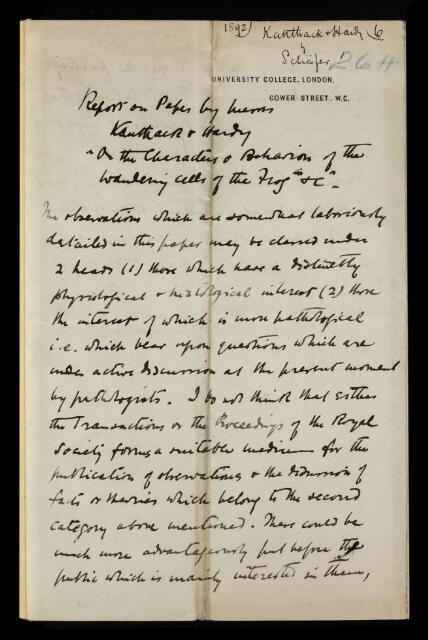 1892) Kanthack & Hardy 6
by
Schäfer 264
UNIVERSITY COLLEGE, LONDON.
GOWER STREET. W.C.
Report on Paper by Messrs
Kanthack & Hardy
"On the Characters & Behaviour of the
wandering cells of the Frog &c".
The observations which are somewhat laboriously
detailed in this paper may be classed under
2 heads (1) those which have a distinctly
physiological & histological interest (2) those
the interest of which is more pathological
i.e. which bear upon questions which are
under active discussion at the present moment
by pathologists. I do not think that either
the Transactions or the Proceedings of the Royal
Society forms a suitable medium for the
publication of observations & the discussion of
facts or theories which belong to the second
category above mentioned. These could be
much more advantageously put before the
public which is mainly interested in them,